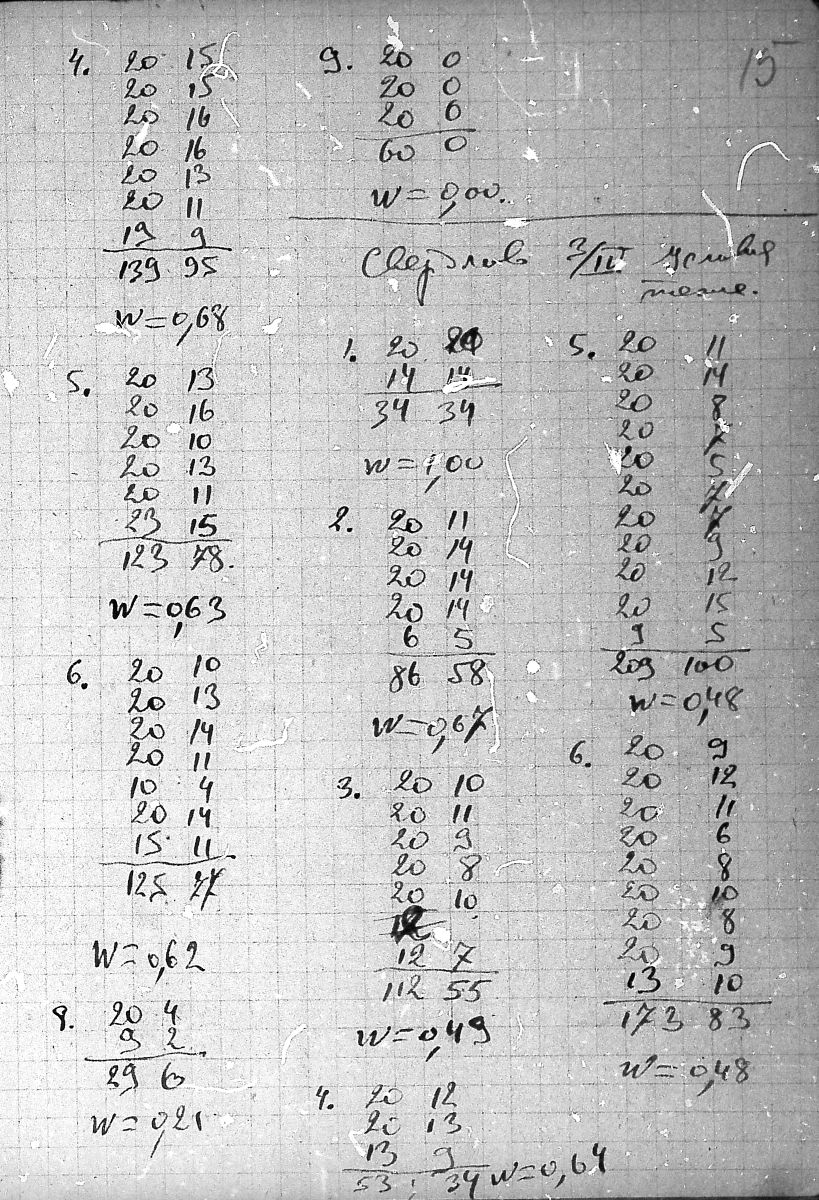 15
4. 20 15
20 15
20 16
20 16
20 13
20 11
19 9
139 95
W=0,68
5. 20 13
20 16
20 10
20 13
20 11
23 15
123 78.
W=0,63
6. 20 10
20 13
20 14
20 11
10 4
20 14
15 11
125 77
W=0,62
8. 20 4
9 2
29 6
W=0,21
9. 20 0
20 0
20 0
60 0
W=0,00.
Свердлов 3/III Условия
те же.
1. 20 20
14 14
34 34
W=1,00
2. 20 11
20 14
20 14
20 14
6 5
86 58
W=0,67
3. 20 10
20 11
20 9
20 8
20 10
12 7
112 55
W=0,49
4. 20 12
20 13
13 9
53 34 W=0,64
5. 20 11
20 14
20 8
20 7
20 5
20 7
20 7
20 9
20 12
20 15
9 5
209 100
W=0,48
6. 20 9
20 12
20 11
20 6
20 8
20 10
20 8
20 9
13 10
173 83
W=0,48